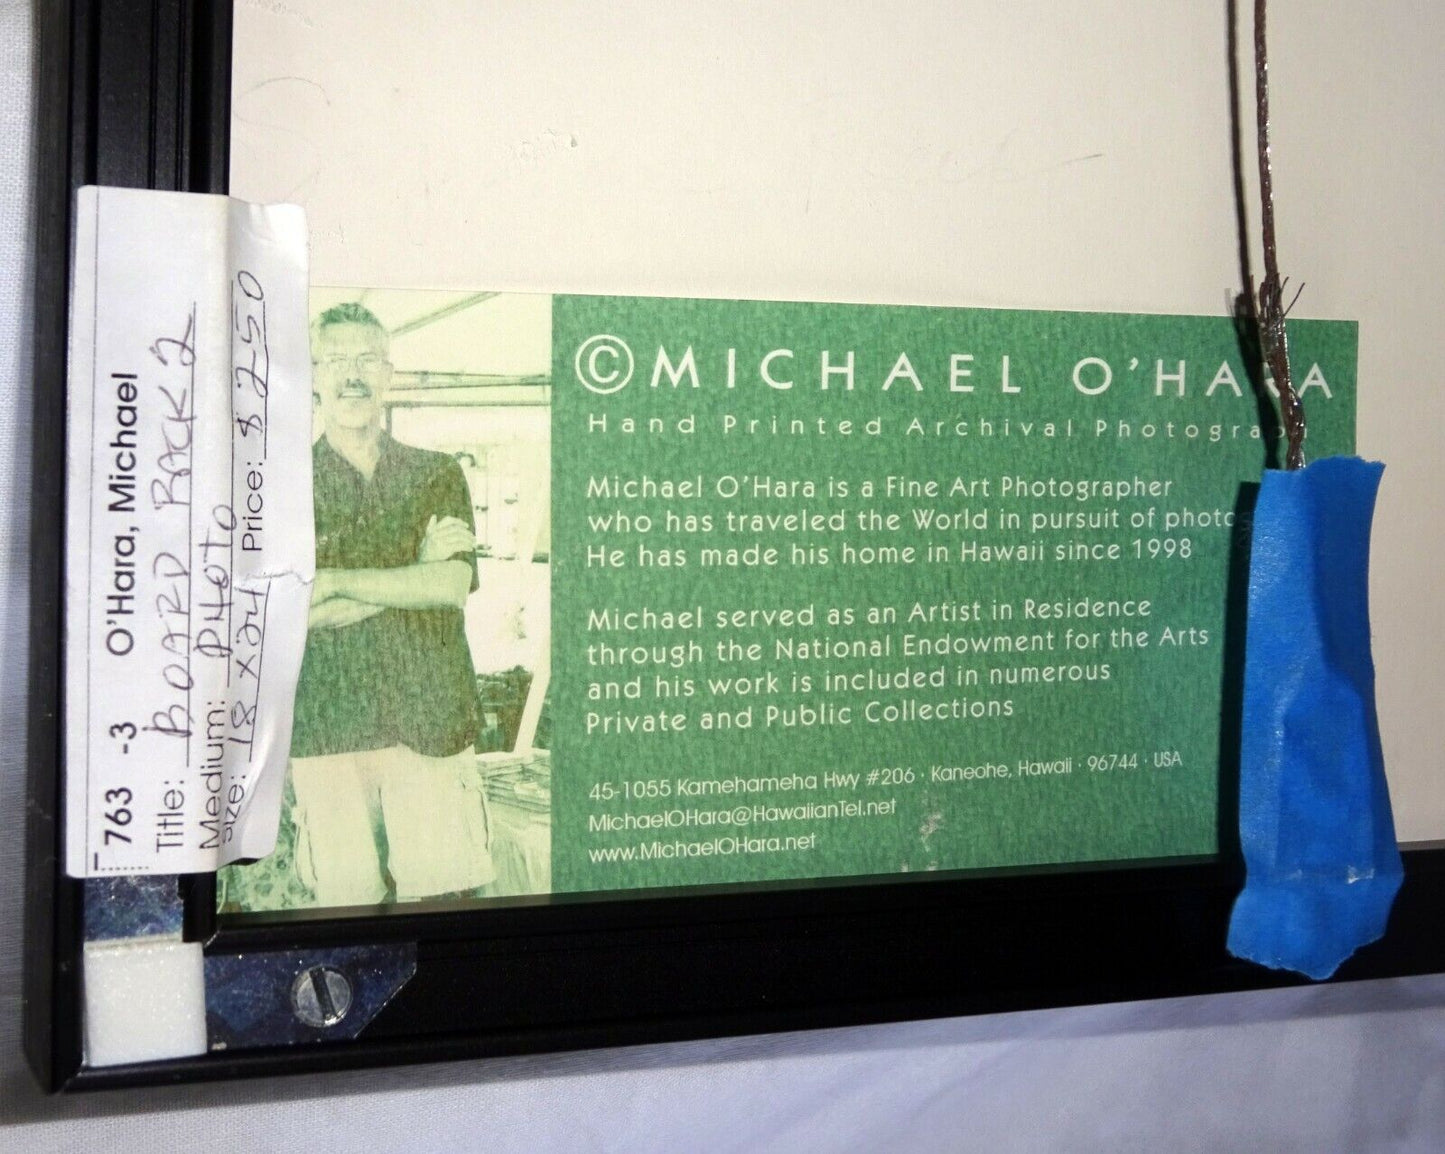 763 -3 O'Hara, Michael
Title: BOARD RACK 2
Medium: PHOTO
Size: 18 x 24 Price: $ 250
©MICHAEL O'HARA
Hand Printed Archival
Michael O'Hara is a Fine Art Photographer
who has traveled the World in pursuit of
He has made his home in Hawaii since 1998
Michael served as an Artist in Residence
through the National Endowment for the Arts
and his work is included in numerous
Private and Public Collections
45-1055 Kamehameha Hwy #206 · Kaneohe, Hawaii · 96744 · USA
MichaelOHara@HawaiianTel.net
www.MichaelOHara.net